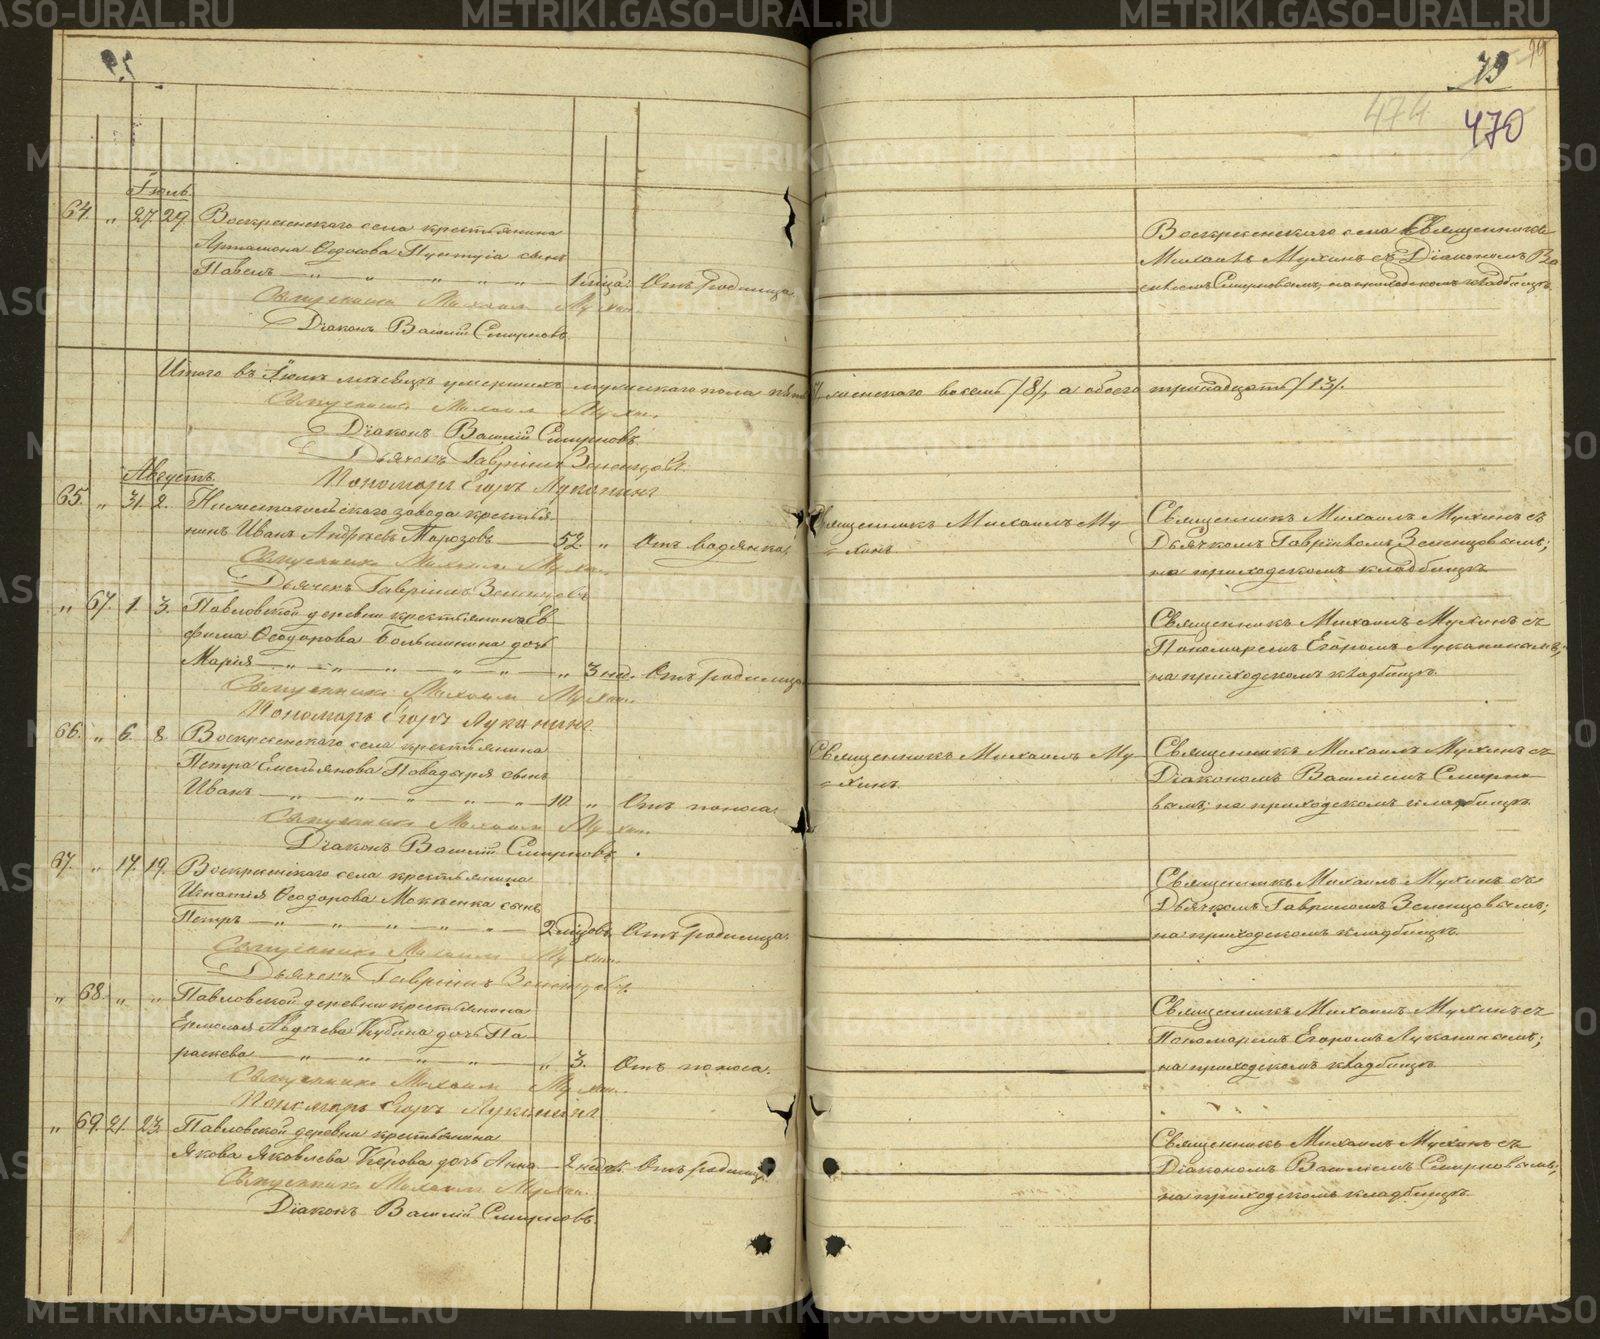 79
474
470
Іюль.
64. " 27. 29. Воскресенскаго села крестьянина
Артамона Ѳедосова Пунтуса сынъ
Павелъ — " — " — " — " — " — 1 мѣсяц. Отъ родимца.
Священникъ Михаилъ Мухинъ.
Діаконъ Василій Смирновъ
Воскресенскаго села Священникъ
Михаилъ Мухинъ съ Діакономъ Ва
силіемъ Смирновымъ, на приходскомъ кладбищѣ.
Итого въ Іюлѣ мѣсяцѣ умершихъ мужескаго пола пять
женскаго восемь /8/, а обоего тринадцать /13/.
Священникъ Михаилъ Мухинъ.
Діаконъ Василій Смирновъ.
Дьячекъ Гавріилъ Зеленцовъ.
Пономарь Егоръ Луканинъ
Августъ.
65. " 31. 2. Нижнетагильскаго завода крестья
нинъ Иванъ Андреевъ Морозовъ — 52. " Отъ водянки.
Священникъ Михаилъ Мухинъ.
Дьячекъ Гавріилъ Зеленцовъ
Священникъ Михаилъ Му
хинъ.
Священникъ Михаилъ Мухинъ съ
Дьячкомъ Гавріиломъ Зеленцовымъ;
на приходскомъ кладбищѣ
" 67. 1. 3. Павловской деревни крестьянина Ев
фима Ѳеодорова Большинина дочь
Марія — " — " — " — " — " 3 нед. Отъ родимца.
Священникъ Михаилъ Мухинъ.
Пономарь Егоръ Луканинъ.
Священникъ Михаилъ Мухинъ съ
Пономаремъ Егоромъ Луканинымъ;
на приходскомъ кладбищѣ.
66. " 6. 8. Воскресенскаго села крестьянина
Петра Емельянова Повадыря сынъ
Иванъ — " — " — " — " — " — 10. " Отъ поноса.
Священникъ Михаилъ Мухинъ.
Діаконъ Василій Смирновъ.
Священникъ Михаилъ Му
хинъ.
Священникъ Михаилъ Мухинъ съ
Діакономъ Василіемъ Смирно
вымъ; на приходскомъ кладбищѣ.
67. " 17. 19. Воскресенскаго села крестьянина
Игнатія Ѳеодорова Мокіенка сынъ
Петръ — " — " — " — " — " — 2 мѣсяцовъ. Отъ родимца.
Священникъ Михаилъ Мухинъ.
Дьячекъ Гавріилъ Зеленцовъ.
Священникъ Михаилъ Мухинъ съ
Дьячкомъ Гавріиломъ Зеленцовымъ;
на приходскомъ кладбищѣ.
" 68. " " Павловской деревни крестьянина
Ермолая Авдѣева Кубина дочь Па
раскева — " — " — " — " — " 3. Отъ поноса.
Священникъ Михаилъ Мухинъ.
Пономарь Егоръ Луканинъ
Священникъ Михаилъ Мухинъ съ
Пономаремъ Егоромъ Луканинымъ;
на приходскомъ кладбищѣ
" 69. 21. 23. Павловской деревни крестьянина
Якова Яковлева Керова дочь Анна — 2 недѣл. Отъ родимца.
Священникъ Михаилъ Мухинъ.
Діаконъ Василій Смирновъ.
Священникъ Михаилъ Мухинъ съ
Діакономъ Василіемъ Смирновымъ;
на приходскомъ кладбищѣ.
METRIKI.GASO-URAL.RU